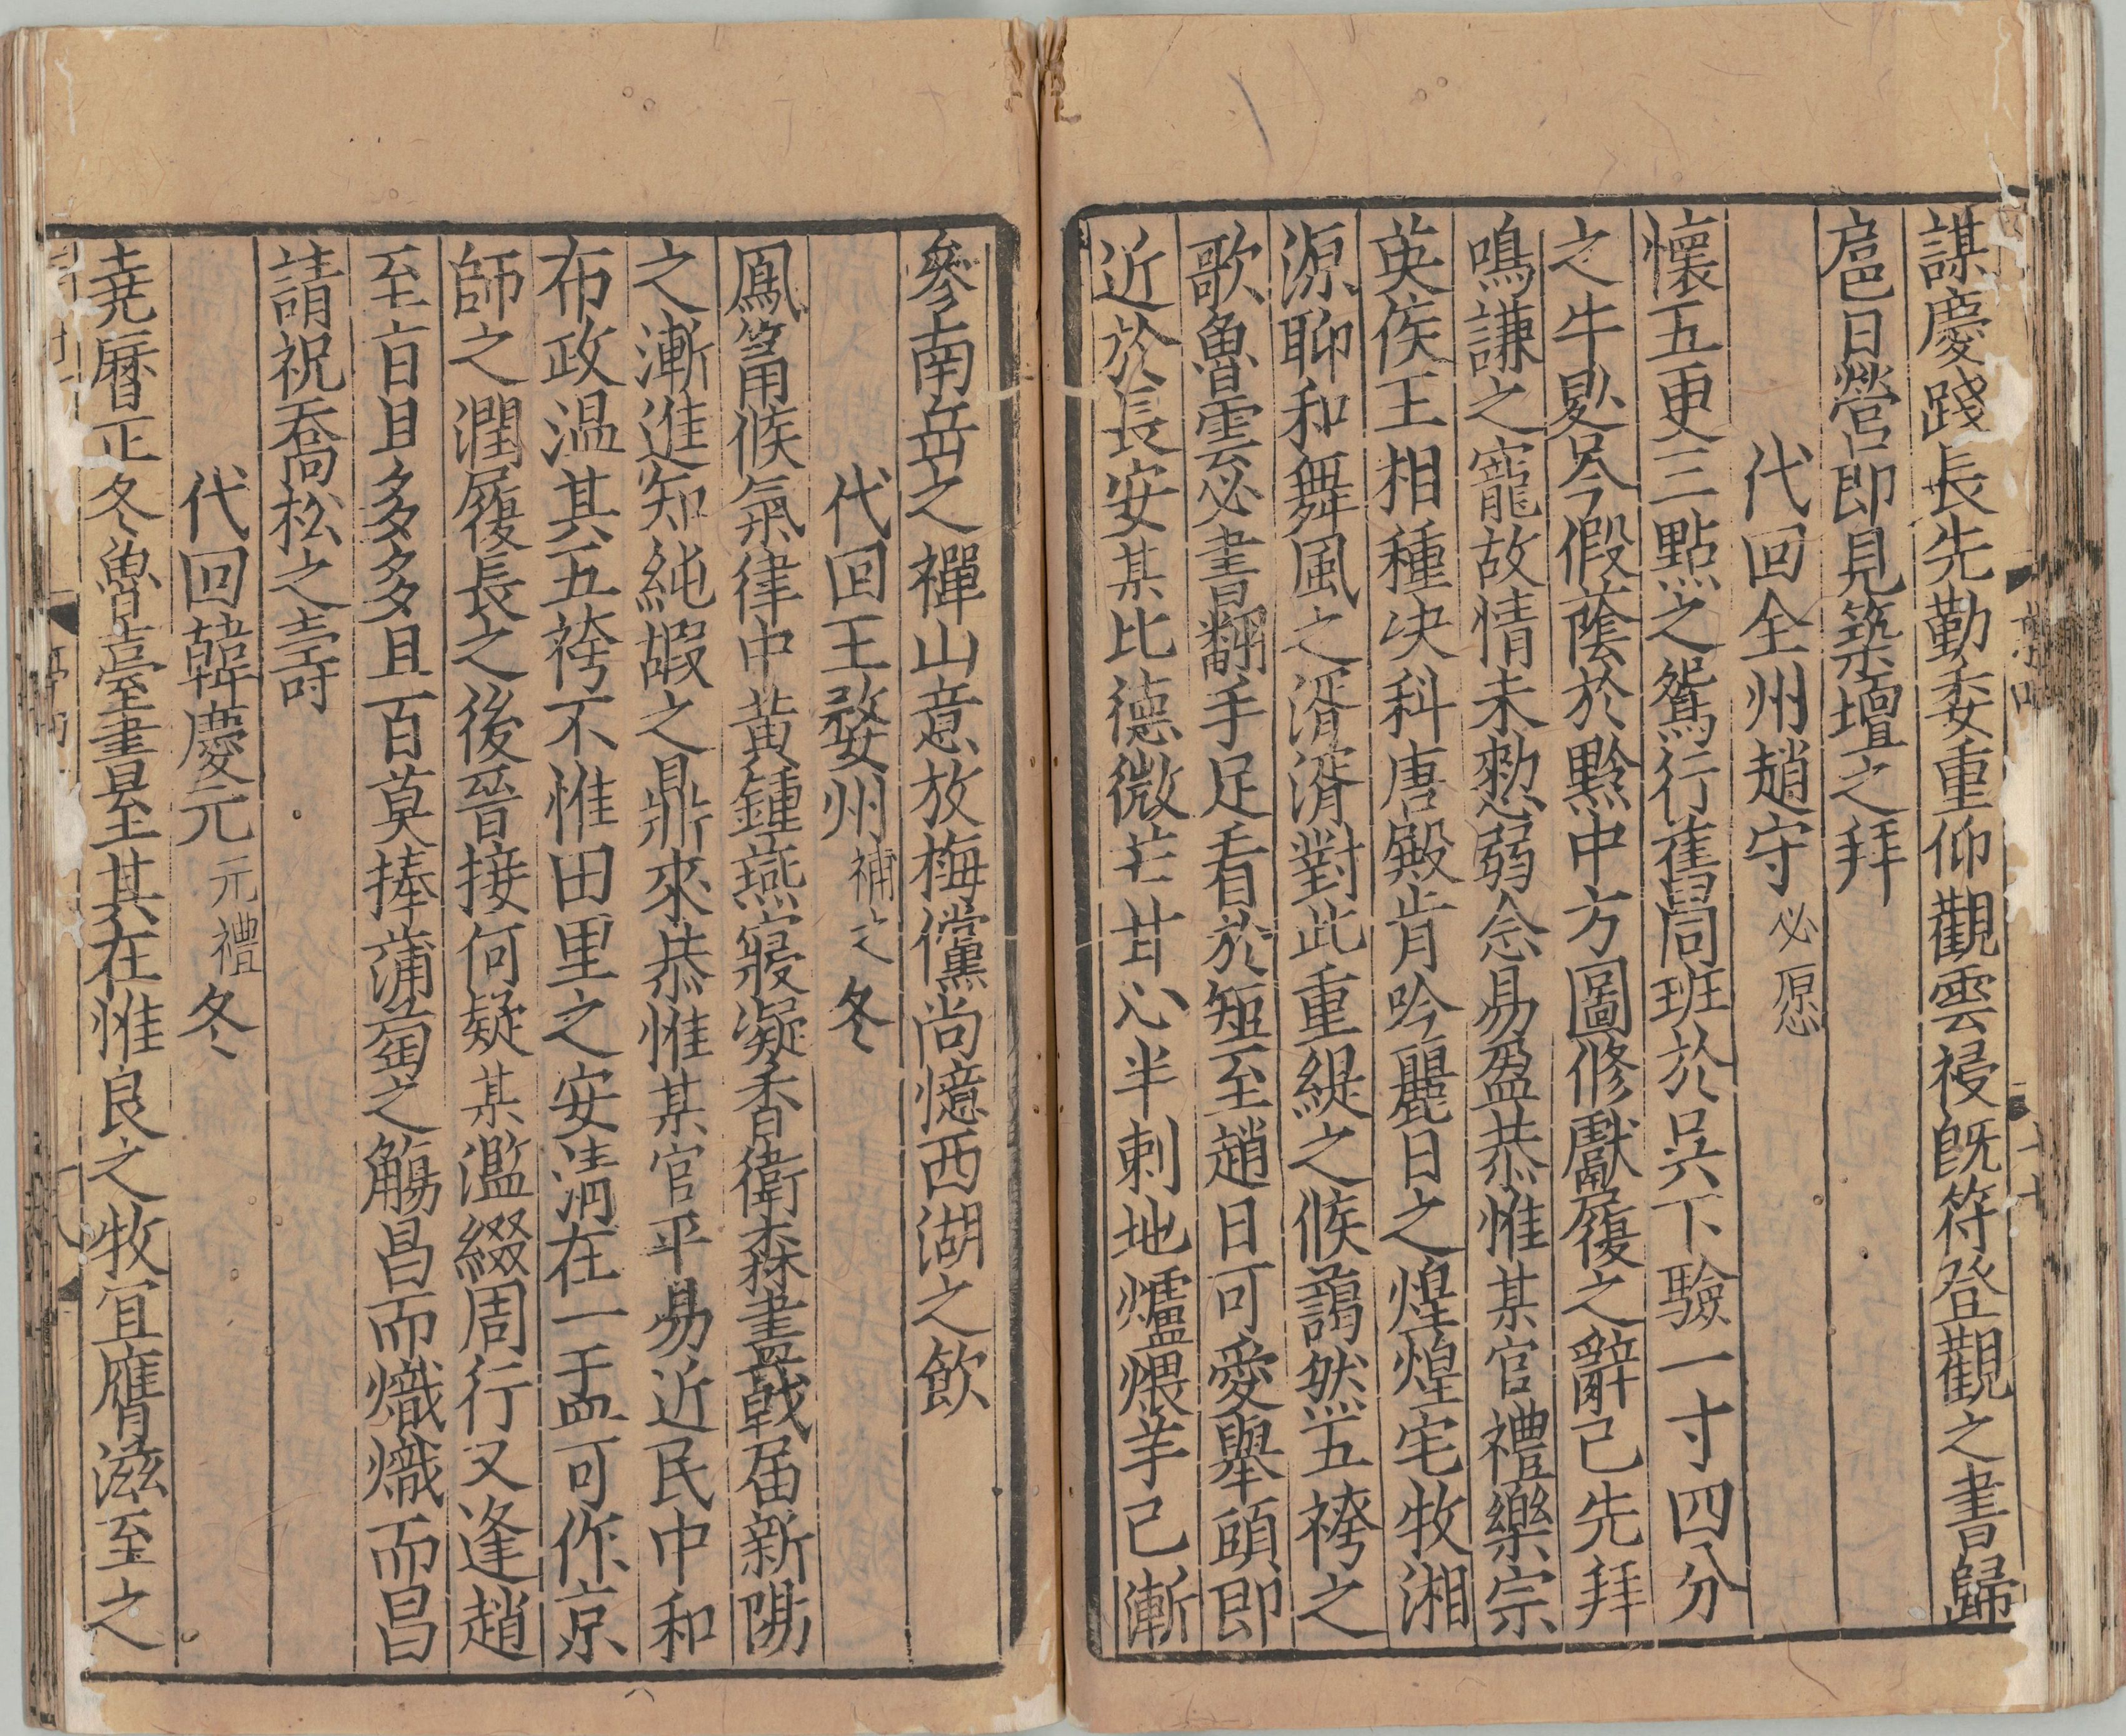 謀慶踐長先勤委重仰觀雲祲旣符登觀之書歸
扈日營即見築壇之拜
代回全州趙守必愿
懷五更三點之鴛行舊同班於吳下驗一寸四分
之牛晷今假蔭於黔中方圖修獻履之辭已先拜
鳴謙之寵故情未懃弱念易盈恭惟某官禮樂宗
英侯王相種决科唐殿肯吟麗日之煌煌宅牧湘
源聊和舞風之湑湑對此重緹之候藹然五袴之
歌魯雲必書翻手足看於短至趙日可愛舉頭即
近於長安某比德微芒甘心半剌地爐煨芋已漸
參南岳之禪山意放梅儻尚憶西湖之飲
代回王婺州補之冬
鳳篇候氣律中黃鍾燕寢凝香衛森畫戟届新陽
之漸進知純嘏之鼎來恭惟某官平易近民中和
布政温其五袴不惟田里之安淸在一盂可作京
師之潤履長之後晉接何疑某濫綴周行又逢趙
至百且多多且百莫捧蒲萄之觴昌而熾熾而昌
請祝喬松之壽
代回韓慶元元禮冬
堯曆正冬魯臺書㬌至其在惟良之牧宜膺滋至之